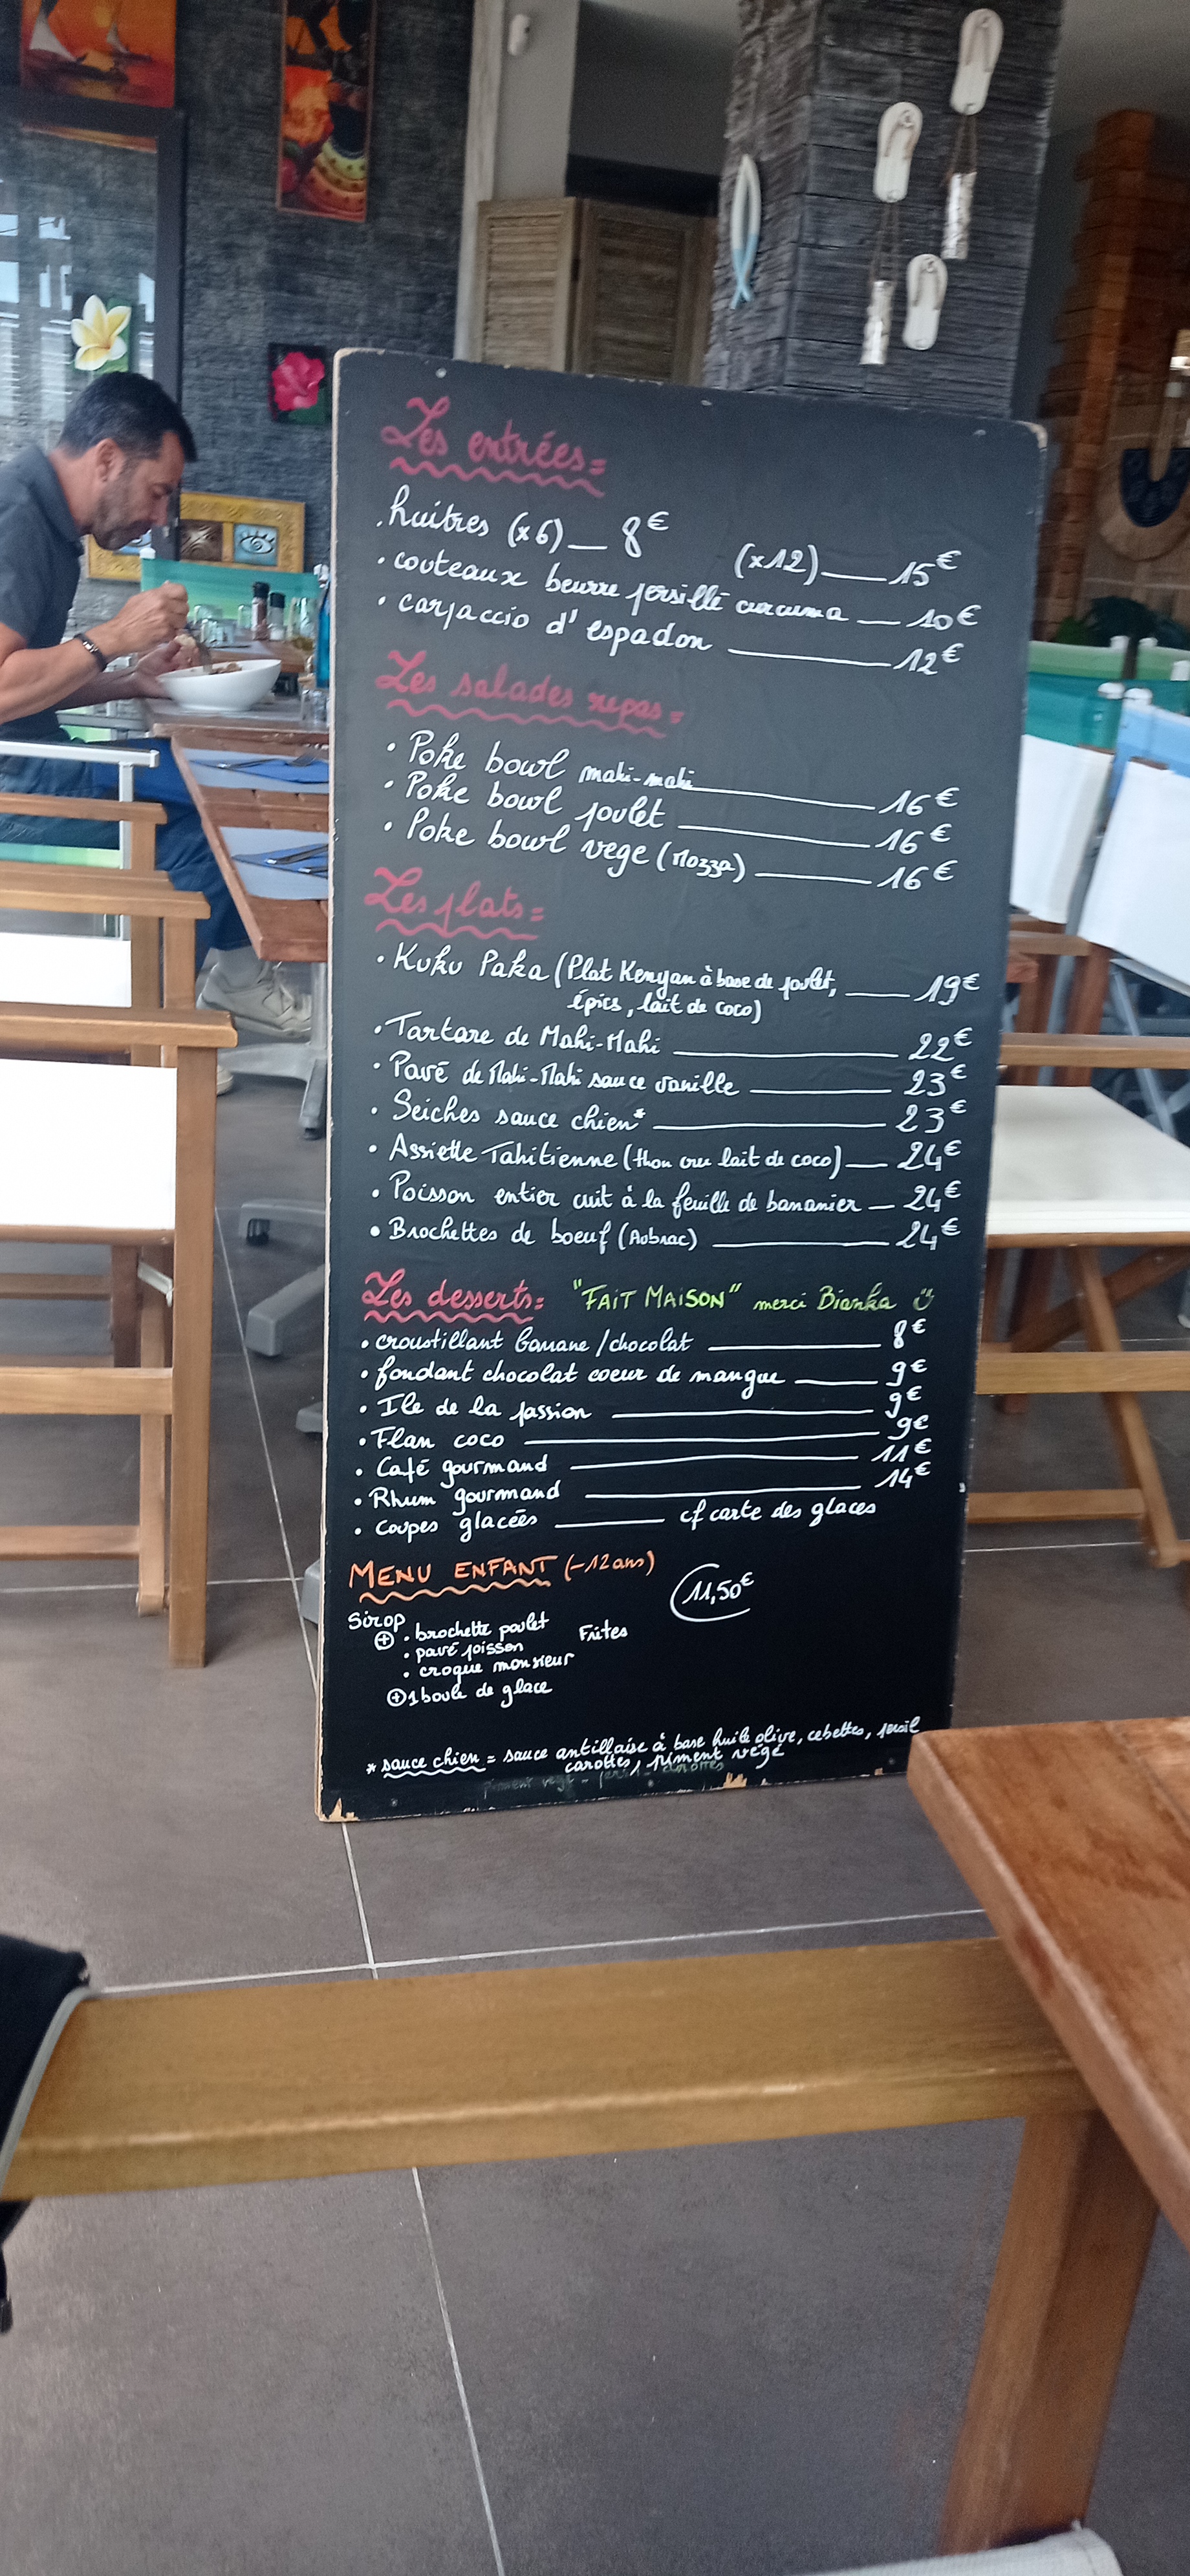 Les entrées =
. huitres (x6) __ 8€ (x12) ___ 15€
• couteaux beurre persillé curcuma __ 10€
• carpaccio d'espadon ______ 12€
Les salades repas =
• Poke bowl mahi-mahi ______ 16€
• Poke bowl poulet ______ 16€
• Poke bowl vege (Mozza) ____ 16€
Les plats =
• Kuku Paka (Plat Kenyan à base de poulet, ___ 19€
épices, lait de coco)
• Tartare de Mahi-Mahi ______ 22€
• Pavé de Mahi-Mahi sauce vanille ____ 23€
• Seiches sauce chien* ______ 23€
• Assiette Tahitienne (thon cru lait de coco) __ 24€
• Poisson entier cuit à la feuille de bananier _ 24€
• Brochettes de boeuf (Aubrac) _____ 24€
Les desserts = "FAIT MAISON" merci Bianka
• croustillant banane / chocolat _____ 8€
• fondant chocolat coeur de mangue ___ 9€
• Ile de la passion ______ 9€
• Flan coco ______ 9€
• Café gourmand ______ 11€
• Rhum gourmand ______ 14€
• Coupes glacées ____ cf carte des glaces
MENU ENFANT (-12 ans) 11,50€
Sirop
+ • brochette poulet Frites
• pavé poisson
• croque monsieur
+ 1 boule de glace
* sauce chien = sauce antillaise à base huile olive, cebettes, persil
carottes, piment végé